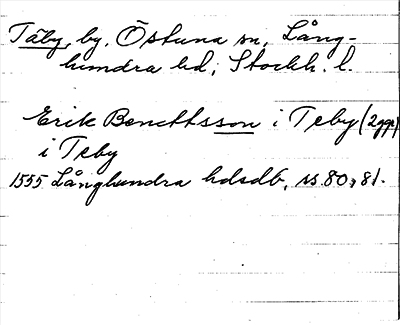 Täby, by, Östuna sn, Lång-
hundra hd, Stockh. l.
Erik Bencttsson i Teby (2ggr)
i Teby
1555 Långhundra hdsdb, ss. 80, 81.